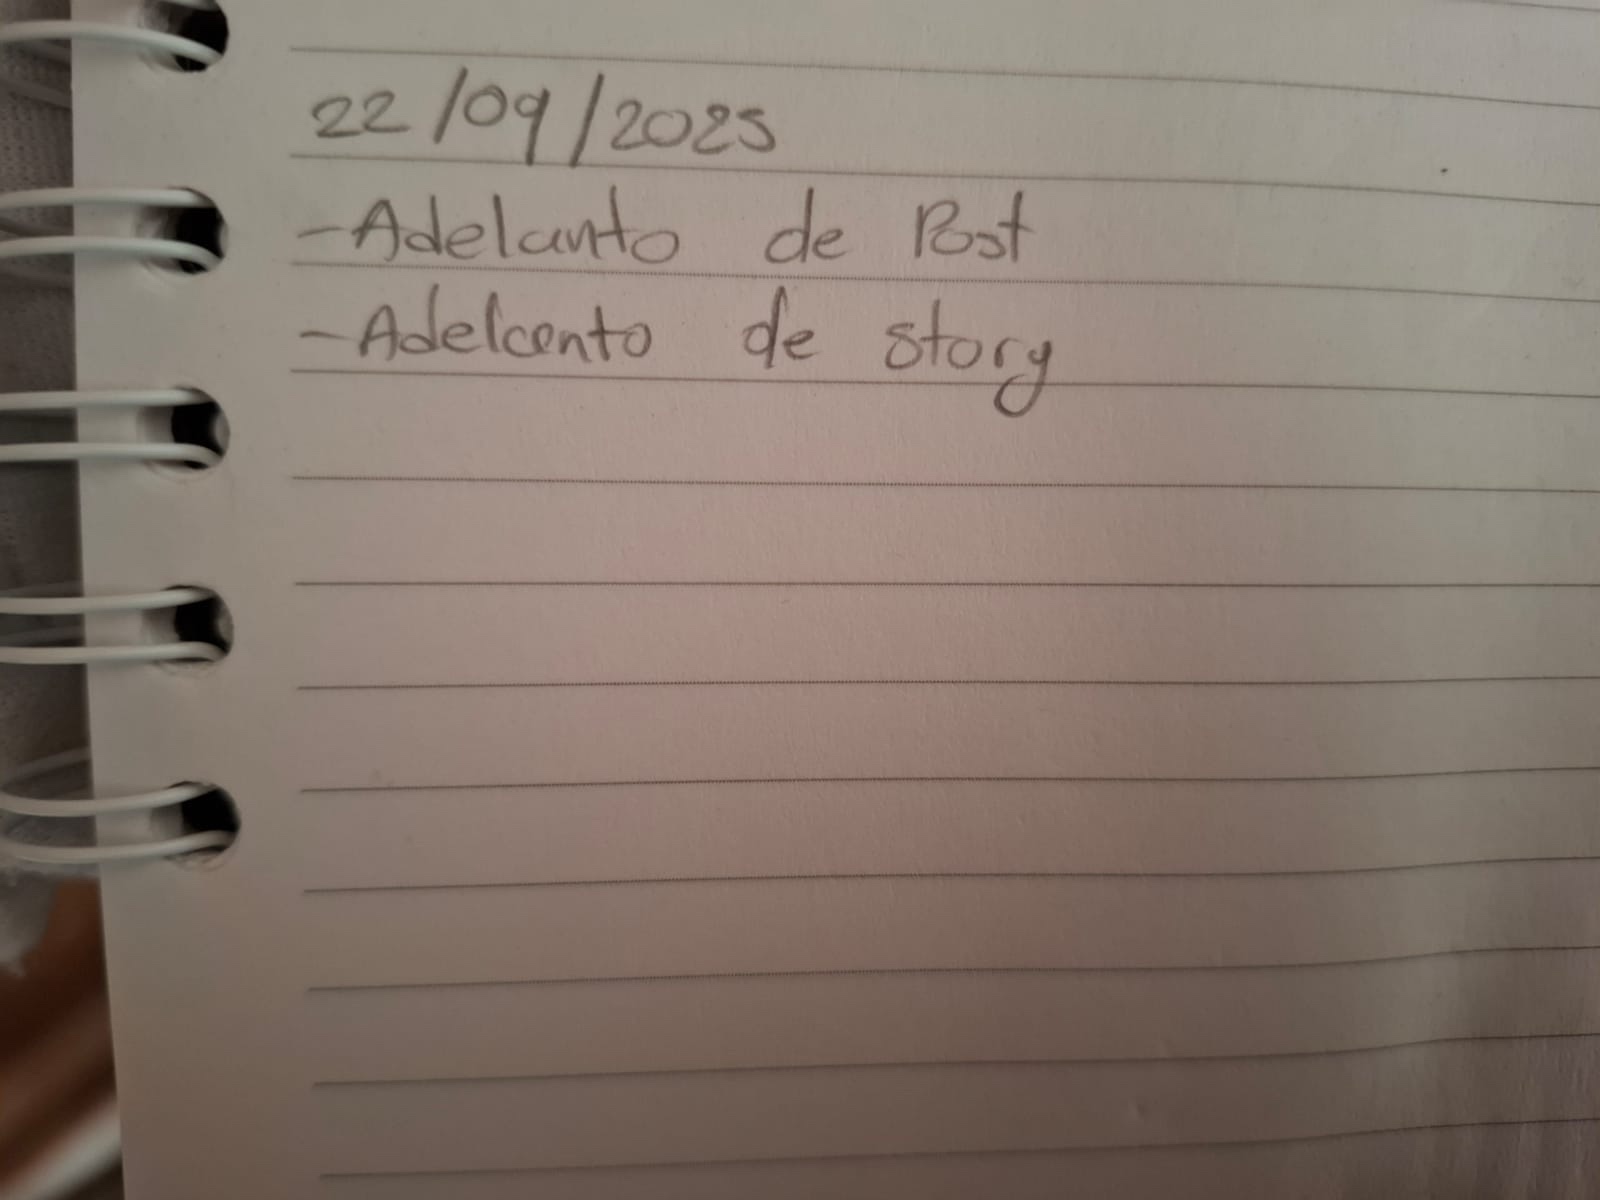 22/09/2025
-Adelanto de Post
-Adelanto de story